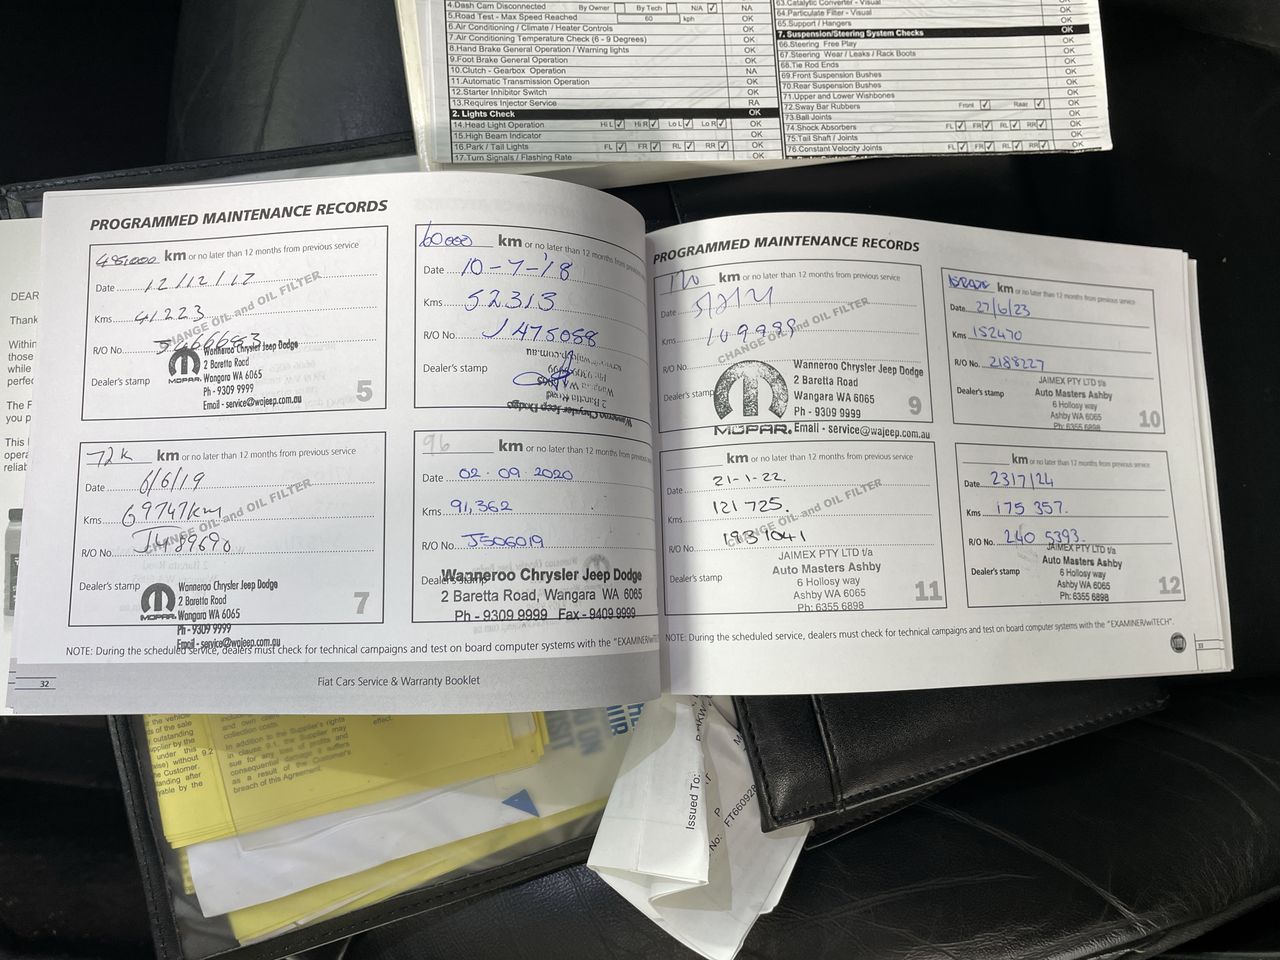 4.Dash Cam Disconnected By Owner By Tech N/A NA
5.Road Test - Max Speed Reached 60 kph OK
6.Air Conditioning / Climate / Heater Controls OK
7.Air Conditioning Temperature Check (6 - 9 Degrees) OK
8.Hand Brake General Operation / Warning lights OK
9.Foot Brake General Operation OK
10.Clutch - Gearbox Operation NA
11.Automatic Transmission Operation OK
12.Starter Inhibitor Switch OK
13.Requires Injector Service RA
2. Lights Check OK
14.Head Light Operation Hi L Hi R Lo L Lo R OK
15.High Beam Indicator OK
16.Park / Tail Lights FL FR RL RR OK
17.Turn Signals / Flashing Rate OK
63.Catalytic Converter - Visual
64.Particulate Filter - Visual OK
65.Support / Hangers OK
7. Suspension/Steering System Checks OK
66.Steering Free Play OK
67.Steering Wear / Leaks / Rack Boots OK
68.Tie Rod Ends OK
69.Front Suspension Bushes OK
70.Rear Suspension Bushes OK
71.Upper and Lower Wishbones OK
72.Sway Bar Rubbers Front Rear OK
73.Ball Joints OK
74.Shock Absorbers FL FR RL RR OK
75.Tail Shaft / Joints OK
76.Constant Velocity Joints FL FR RL RR OK
PROGRAMMED MAINTENANCE RECORDS
km or no later than 12 months from previous service
Date 12/12/17
Kms 41223
R/O No.
CHANGE OIL and OIL FILTER
Dealer's stamp
MOPAR
Wanneroo Chrysler Jeep Dodge
2 Baretta Road
Wangara WA 6065
Ph - 9309 9999
Email - service@wajeep.com.au
5
60000 km or no later than 12 months from previous
Date 10-7-'18
Kms 52313
R/O No. J475058
Dealer's stamp
Wanneroo Chrysler Jeep Dodge
2 Baretta Road
72k km or no later than 12 months from previous service
Date 6/6/19
Kms 69747km
R/O No. J489690
CHANGE OIL and OIL FILTER
Dealer's stamp
MOPAR
Wanneroo Chrysler Jeep Dodge
2 Baretta Road
Wangara WA 6065
Ph - 9309 9999
Email - service@wajeep.com.au
7
96 km or no later than 12 months from previous
Date 02-09-2020
Kms 91,362
R/O No. J506019
Dealer's stamp
Wanneroo Chrysler Jeep Dodge
2 Baretta Road, Wangara WA 6065
Ph - 9309 9999 Fax - 9409 9999
NOTE: During the scheduled service, dealers must check for technical campaigns and test on board computer systems with the "EXAMINER/wiTECH
32
Fiat Cars Service & Warranty Booklet
PROGRAMMED MAINTENANCE RECORDS
120 km or no later than 12 months from previous service
Date
Kms 109989
R/O No.
CHANGE OIL and OIL FILTER
Dealer's stamp
MOPAR
Wanneroo Chrysler Jeep Dodge
2 Baretta Road
Wangara WA 6065
Ph - 9309 9999
Email - service@wajeep.com.au
9
km or no later than 12 months from previous service
Date 27/6/23
Kms 152470
R/O No. 2188227
Dealer's stamp
JAIMEX PTY LTD t/a
Auto Masters Ashby
6 Hollosy way
Ashby WA 6065
Ph: 6355 6898
10
km or no later than 12 months from previous service
Date 21-1-22.
Kms 121 725.
R/O No. 1931041
CHANGE OIL and OIL FILTER
Dealer's stamp
JAIMEX PTY LTD t/a
Auto Masters Ashby
6 Hollosy way
Ashby WA 6065
Ph: 6355 6898
11
km or no later than 12 months from previous service
Date 23/7/24
Kms 175 357.
R/O No. 240 5393.
Dealer's stamp
JAIMEX PTY LTD t/a
Auto Masters Ashby
6 Hollosy way
Ashby WA 6065
Ph: 6355 6898
12
NOTE: During the scheduled service, dealers must check for technical campaigns and test on board computer systems with the "EXAMINER/wiTECH".
33
DEAR
Thank
Within
those
while
perfec
The F
you p
This
opera
reliab
In addition to the Supplier's rights
in clause 9.1, the Supplier may
sue for any loss of profits and
consequential damage it suffers
as a result of the Customer's
breach of this Agreement.
effect.
Issued To:
No: FT660928